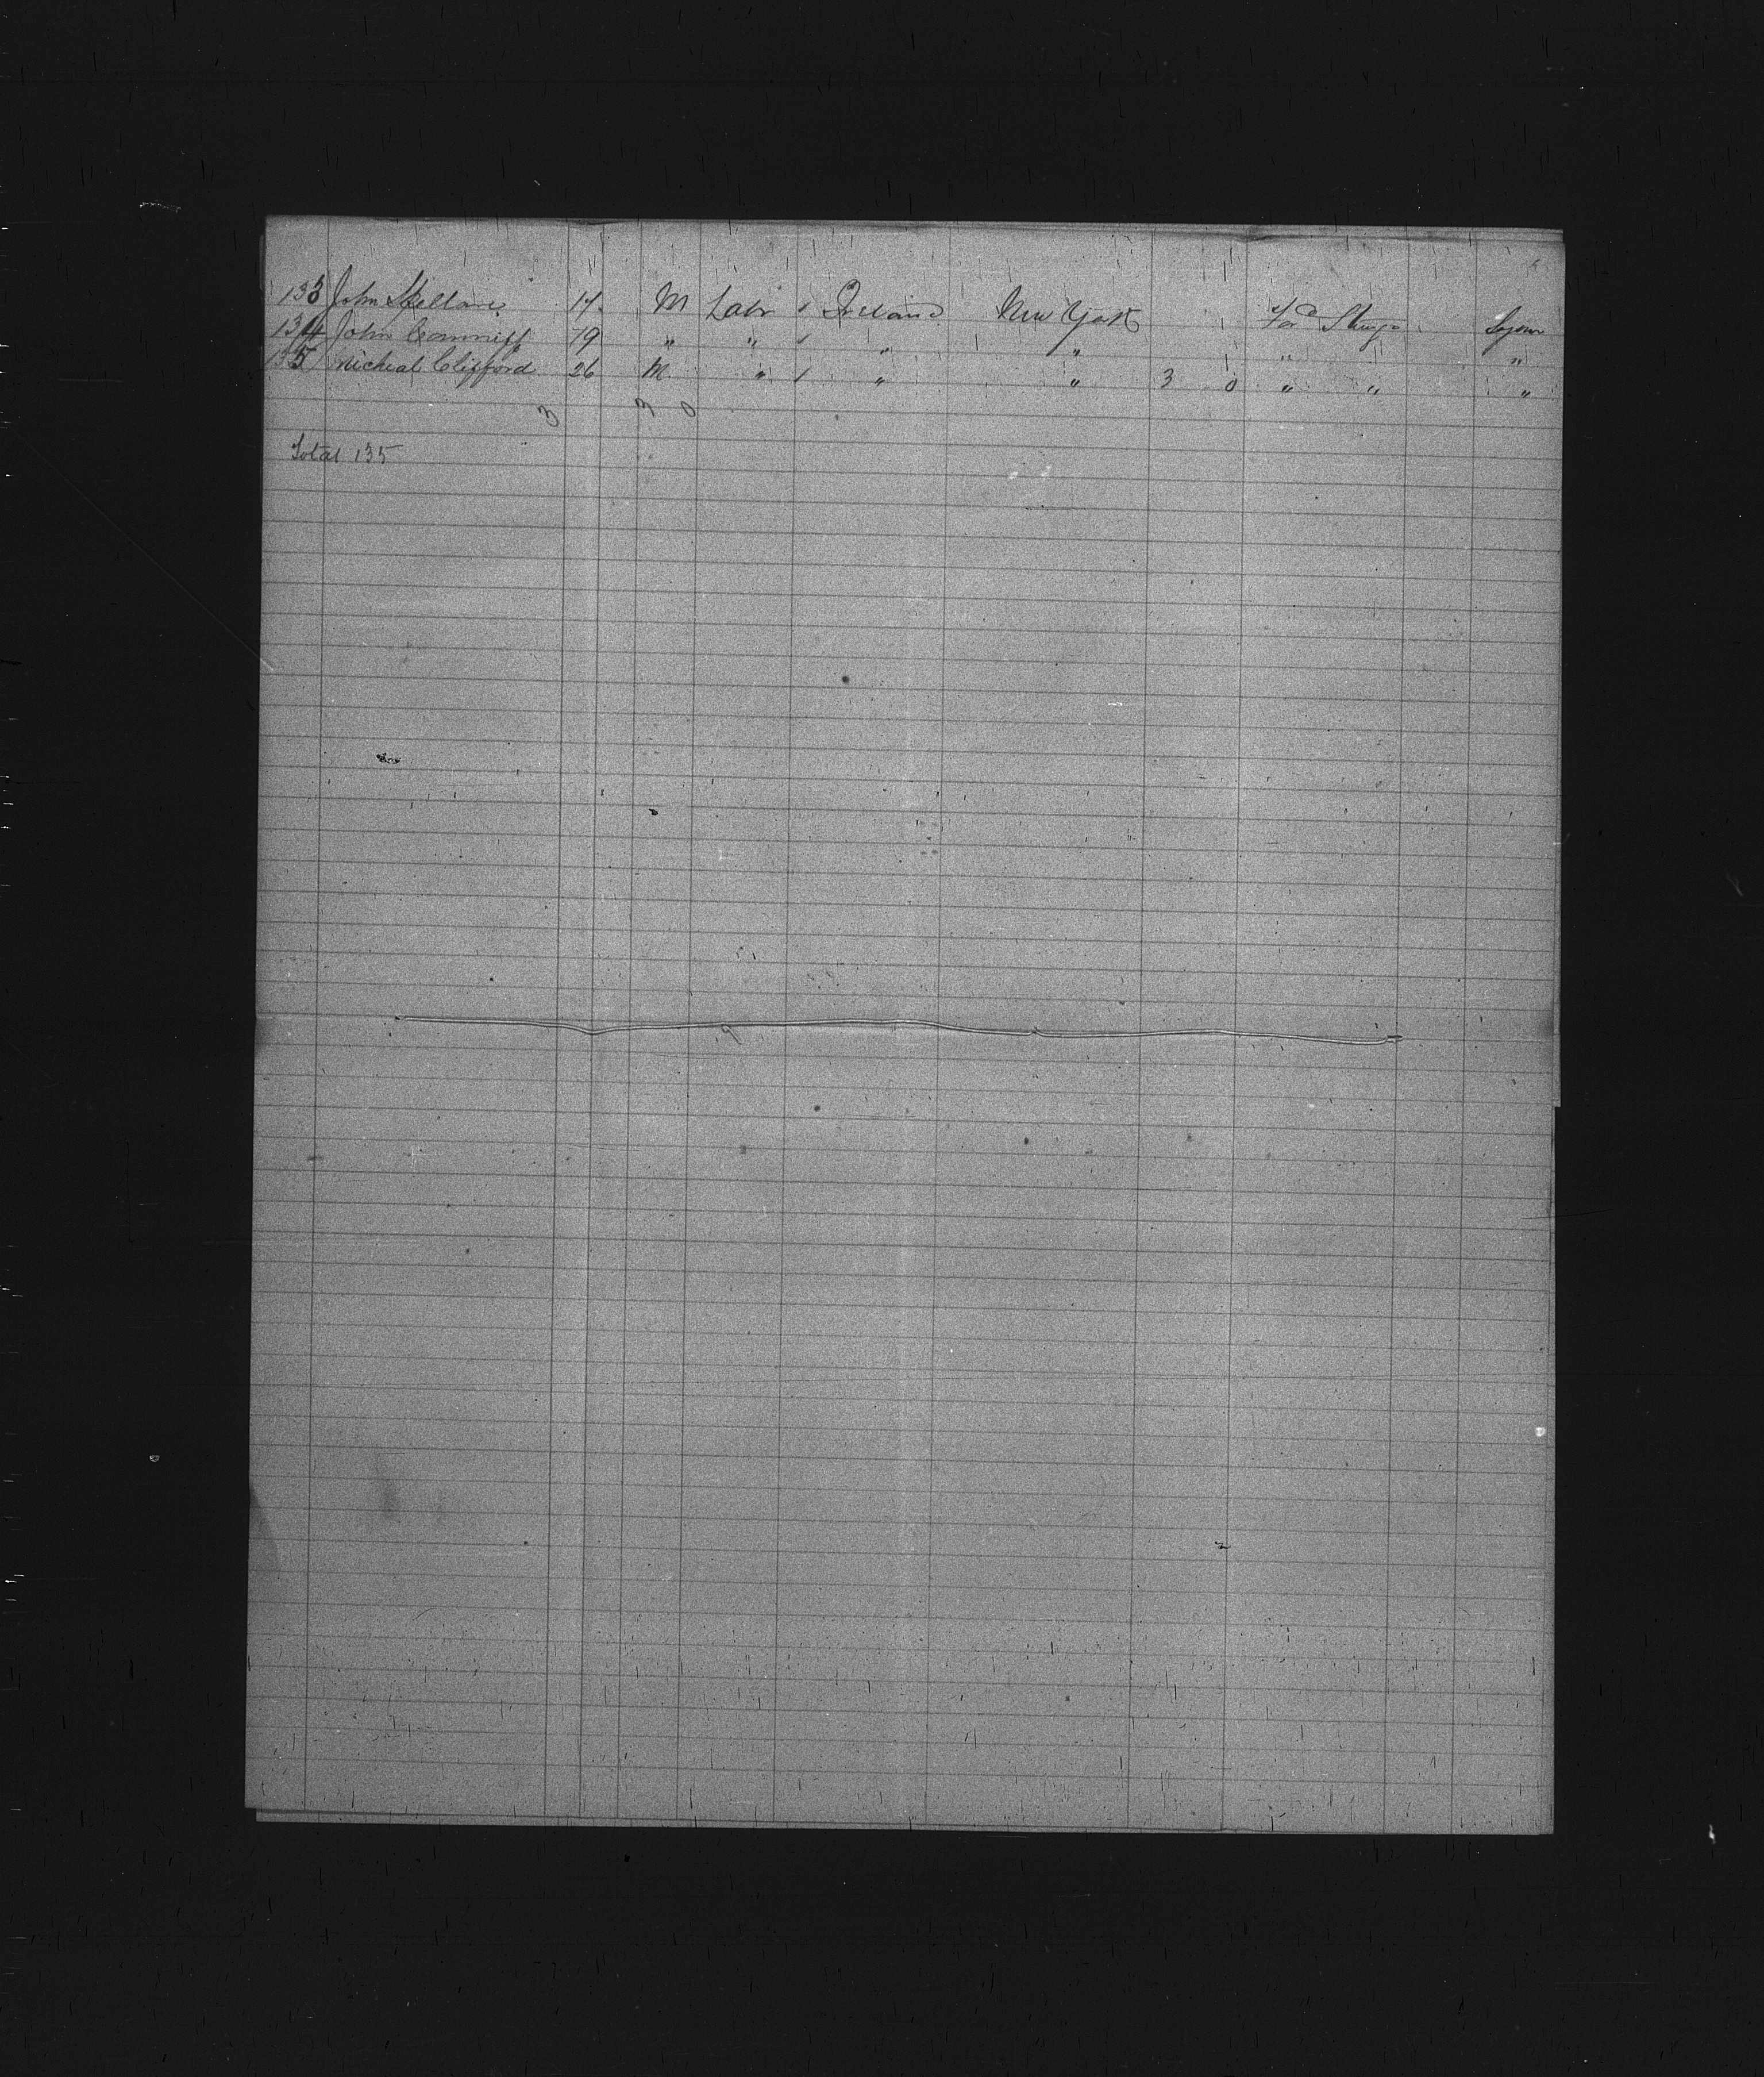 133 John Spellane 17 M Labr / Ireland New York Ford Sojour
134 John Canniff 19 " " / " " " "
135 Micheal Clifford 26 M " / " " 3 0 " " "
3 3 0
Total 135